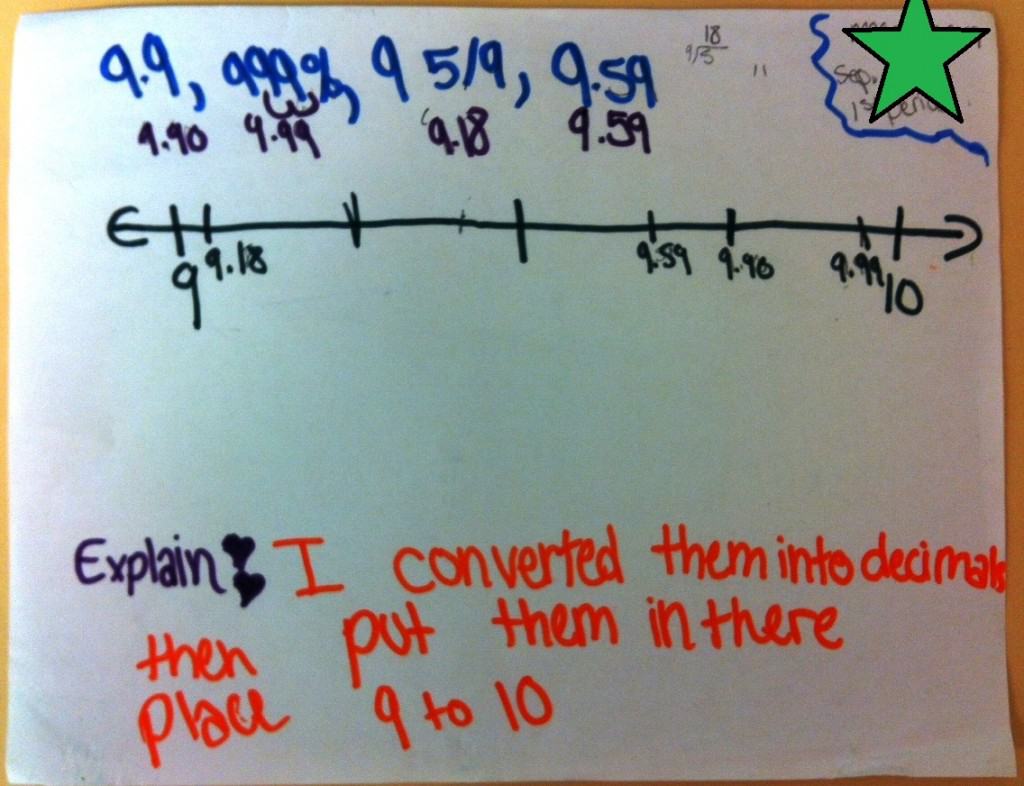 9.9, 999%, 9 5/9, 9.59
9.90 9.99 9.18 9.59
18
9/5
9 9.18 9.59 9.90 9.99 10
Explain: I converted them into decimals
then put them in there
place 9 to 10